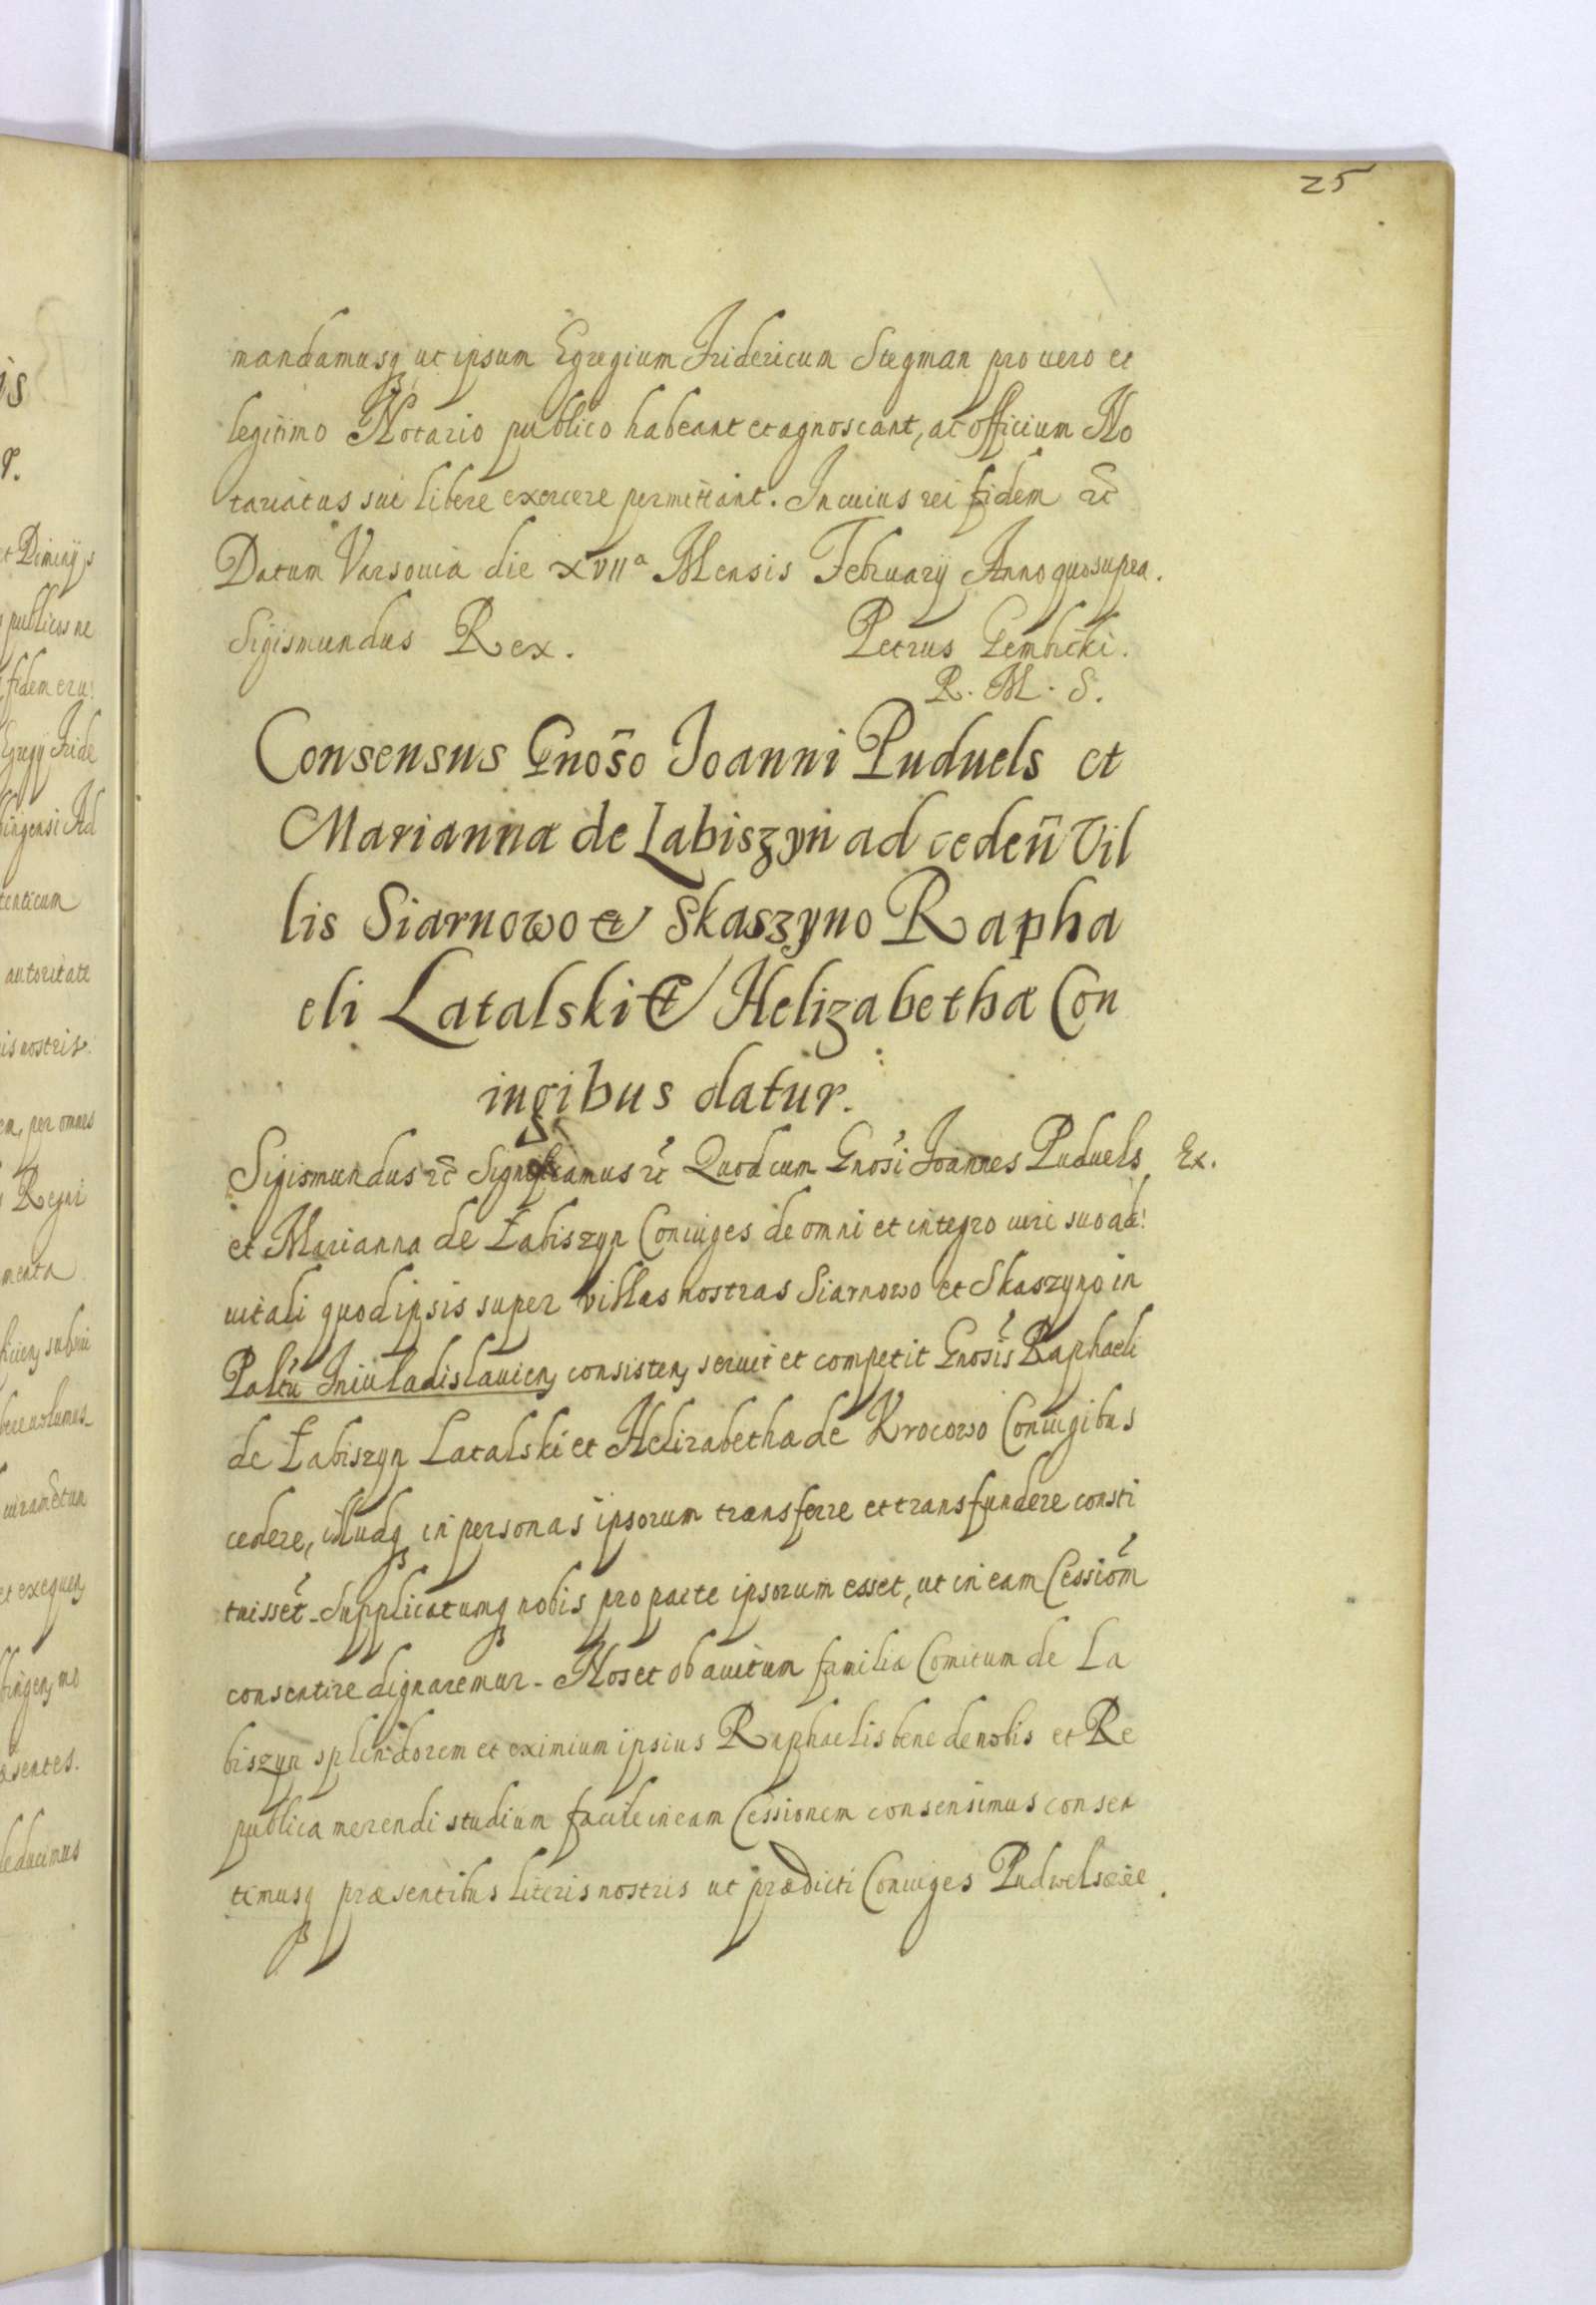 25
mandamusq ut ipsum Egregium Fridericum Stegman pro vero et
legitimo Notario publico habeant et agnoscant, ac officium No
tariatus sui libere exercere permittant. In cuius rei fidem etc̃
Datum Varsouiæ die XVIIa Mensis February Anno quo supra.
Sigismundus Rex. Petrus Gembicki.
R. M. S.
Consensus Gnōso Joanni Puduels et
Mariannæ de Labiszyn ad cedeñ Vil
lis Siarnowo et Skaszyno Rapha
eli Latalski et Helizabethæ Con
iugibus datur.
Sigismundus etc̃ Significamus etc̃ Quod cum Gnosi Joannes Puduels Ex.
et Marianna de Łabiszyn Coniuges de omni et integro iure suo ad:
uitali quod ipsis super villas nostras Siarnowo et Skaszyno in
Paltu Iniuladislauien consisten seruit et competit Gnosis Raphaeli
de Łabiszyn Latalski et Helizabetha de Krocowo Coniugibus
cedere, illudq in personas ipsorum transferre et transfundere consti
tuisset. Supplicatumq nobis pro parte ipsorum esset, ut in eam Cessiom̃
consentire dignaremur. Nos et ob auitum familiæ Comitum de La
biszyn splendorem et eximium ipsius Raphaelis bene de nobis et Re
publica merendi studium facile in eam Cessionem consensimus consen
timusq præsentibus literis nostris ut prædicti Coniuges Pudwels
is
r.
et
publicos ne
fidem
Egregy Fride
bingensi Ad
tenticum
autoritate
is nostris
em, per omnes
Regni
menta
bere uolumus
et exequen
bingen mo
æsentes.
educimus